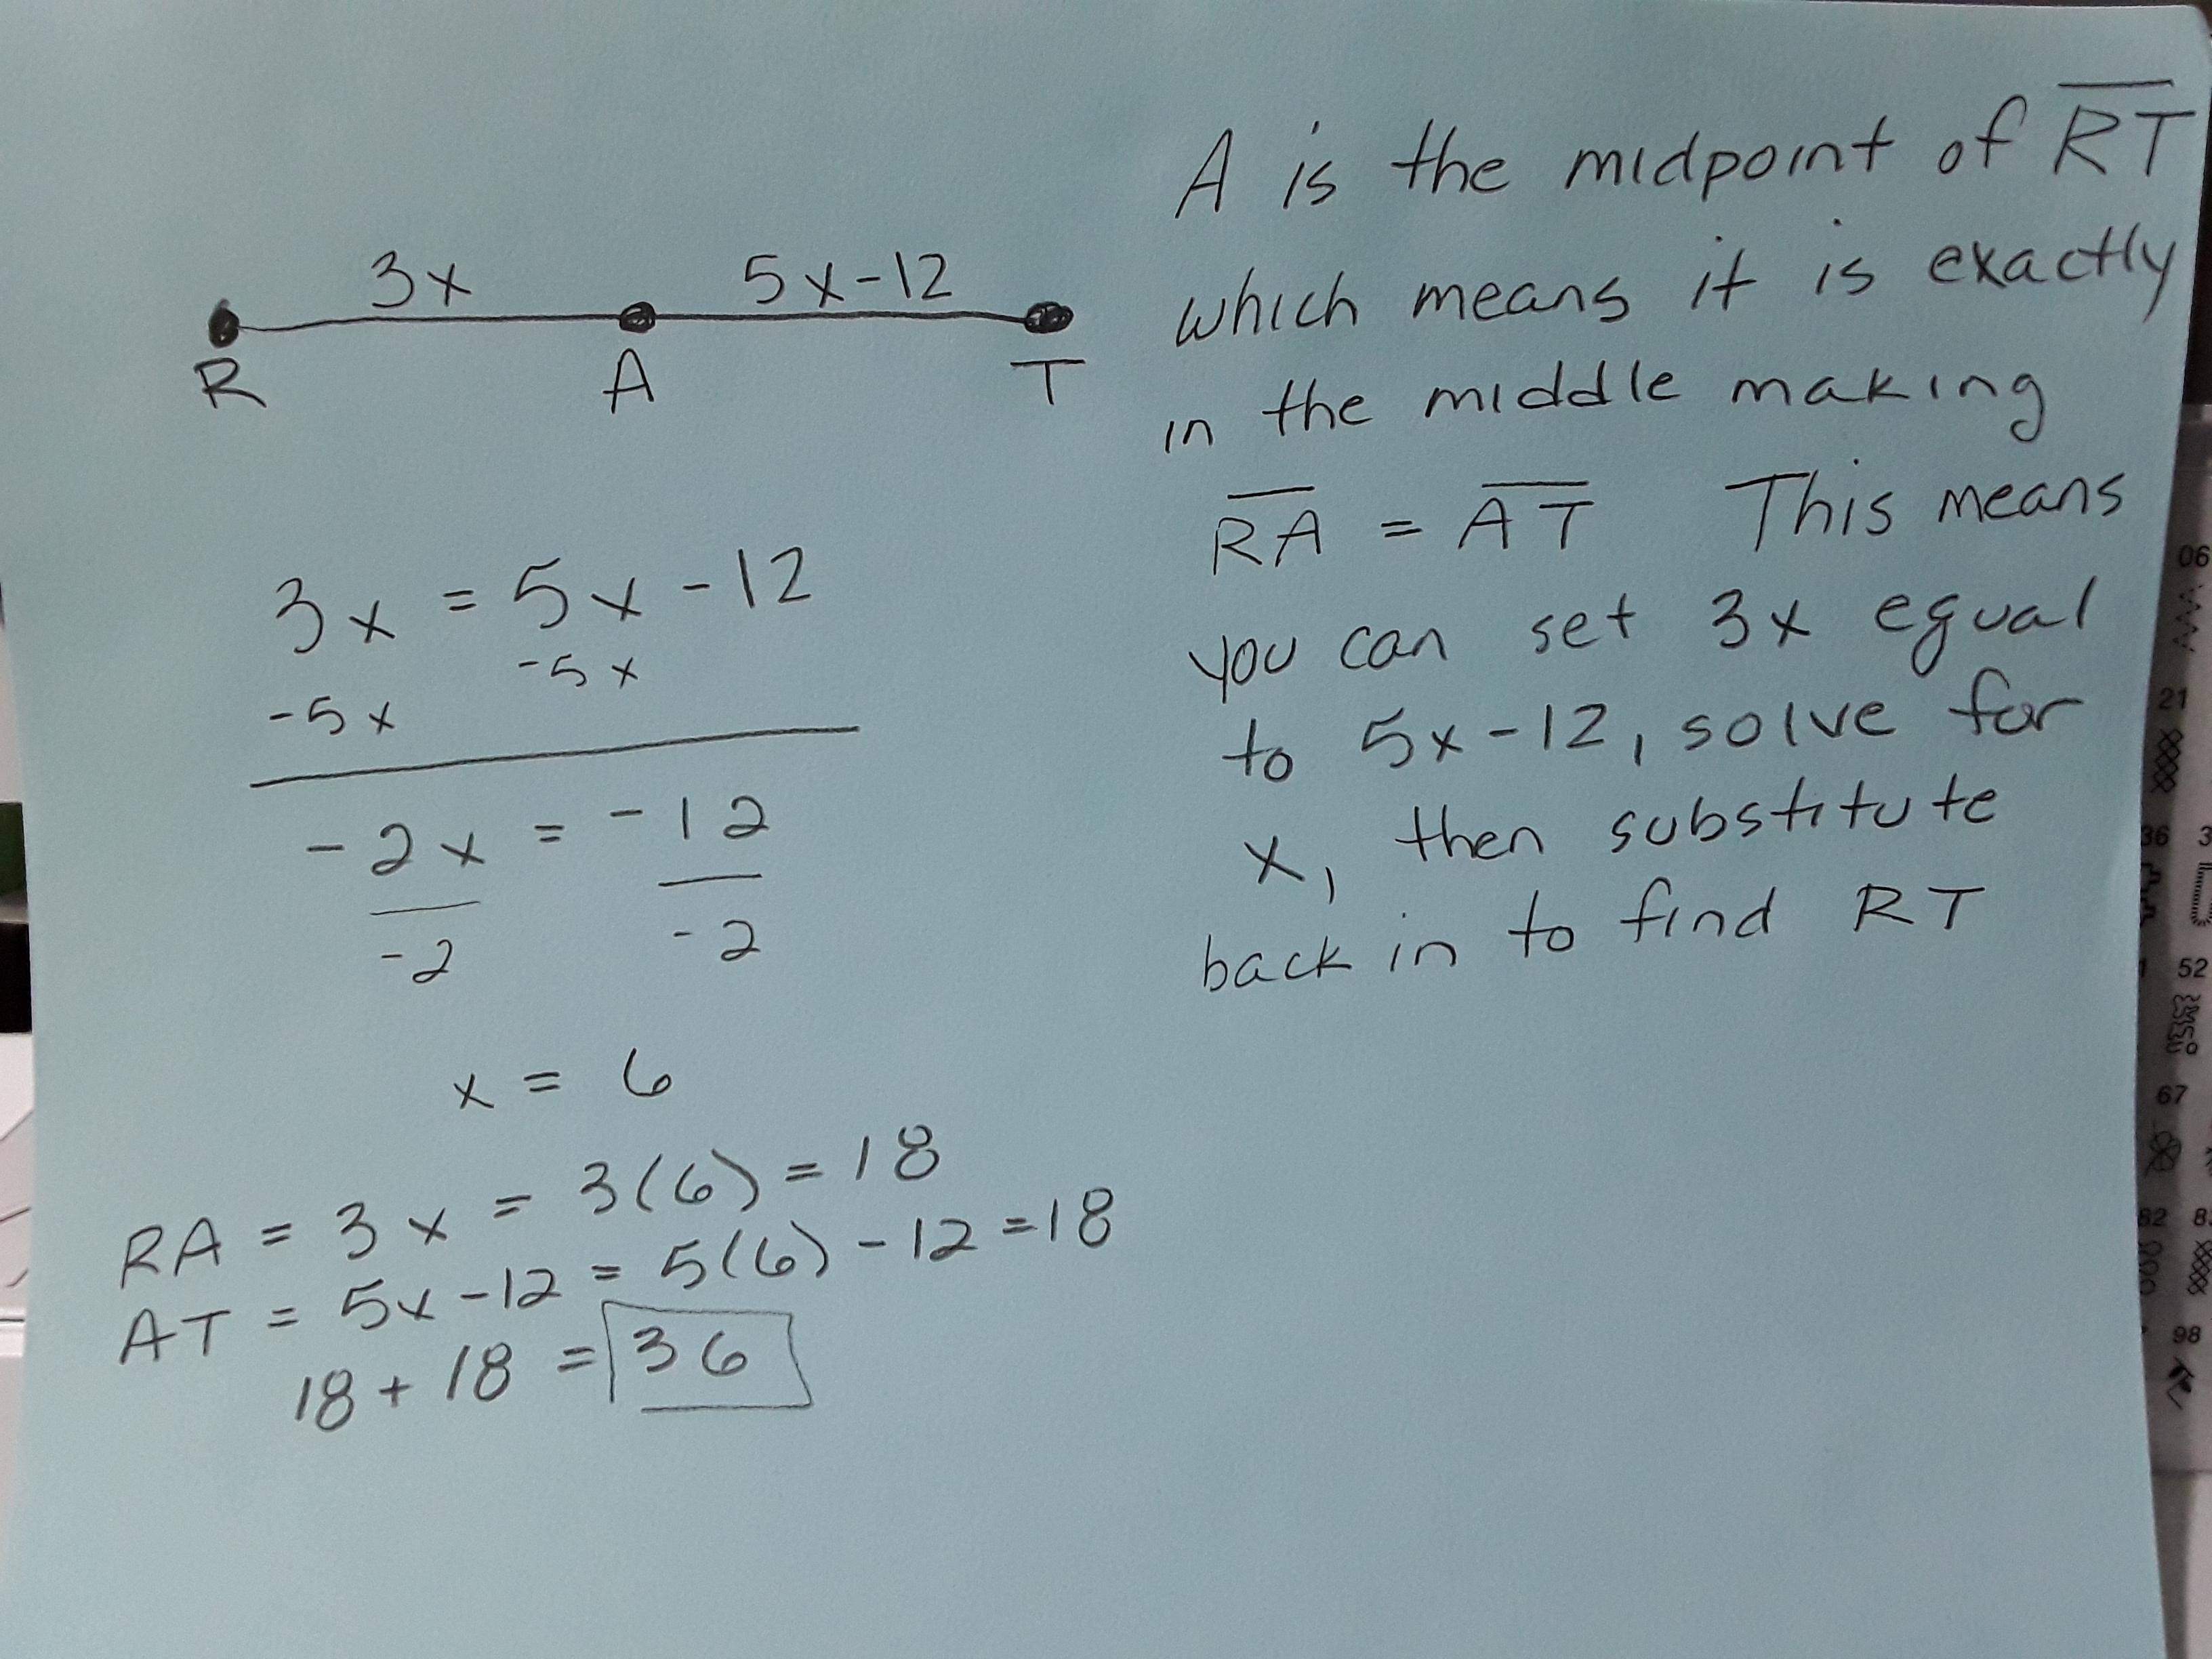 3x 5x-12
R A T
3x = 5x - 12
-5x -5x
-2x = -12
-2 -2
x = 6
RA = 3x = 3(6) = 18
AT = 5x-12 = 5(6) - 12 = 18
18 + 18 = 36
A is the midpoint of RT
which means it is exactly
in the middle making
RA = AT This means
you can set 3x equal
to 5x-12, solve for
x, then substitute
back in to find RT
06
21
36 3
52
67
82 8
98